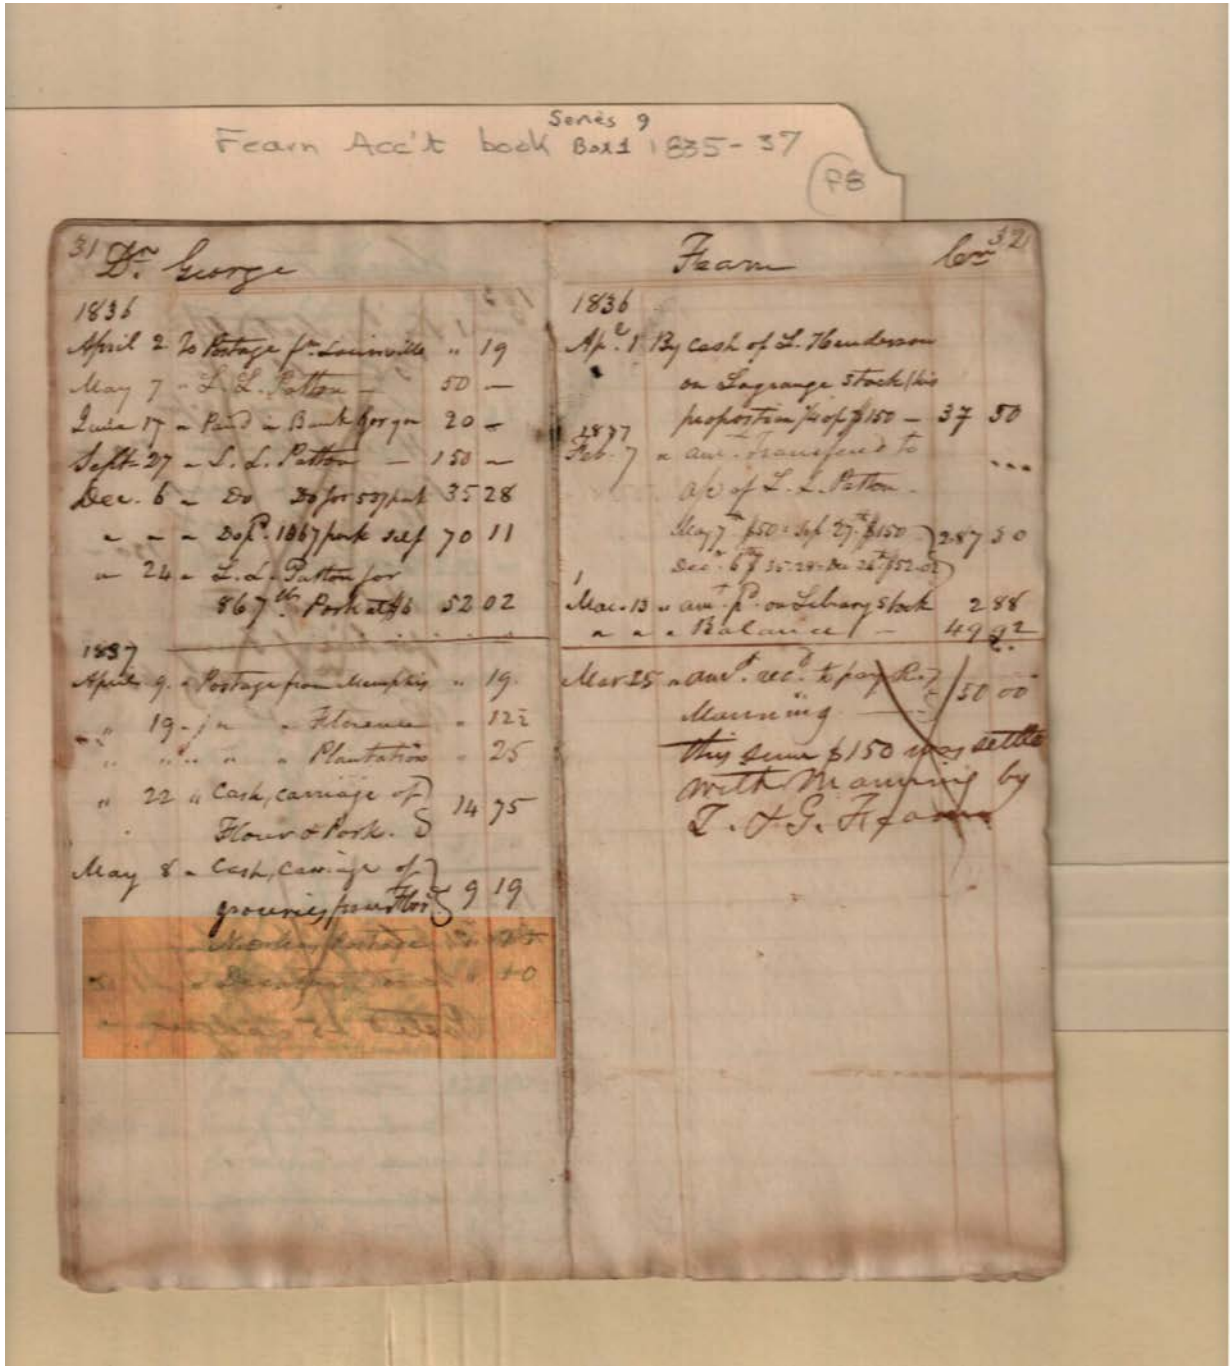 Series 9
Fearn Acc't book Box 1 1835-37
P8
31 Dr. George
1836
April 2 To Postage fm Louisville " 19
May 7 " L. L. Patton — 50 —
June 17 " Paid in Bank for you 20 —
Sept 27 " L. L. Patton — 150 —
Dec. 6 " Do Do for 35 28
" " " Do pd. 1867 pork self 70 11
" 24 " L. L. Patton for
867 lb Pork at $6 52 02
1837
April 9. " Postage from Memphis " 19.
" 19 " " Florence " 12½
" " " " " Plantation " 25
" 22 " Cash, carriage of
Flour & Pork. 14 75
May 8 " Cash, carriage of
groceries from Flor. 9 19
Postage
Fearn Cr. 32
1836
Apl. 1 By cash of L. Henderson
on Lagrange stock (his
proportion ¼ of $150 — 37 50
1837
Feb. 7 " amt. transfered to
a/c of L. L. Patton.
May 7th $50 = Sep 27th $150
Decr. 6th $35.28 = Dec 24th $52.02 287 30
Mar. 13 " amt. pd. on Library stock 2 88
" " " Balance — 49 92
Mar 25 " amt. recd. to pay R.
Manning 150 00
this sum $150 was settled
with Manning by
T. & G. Fearn